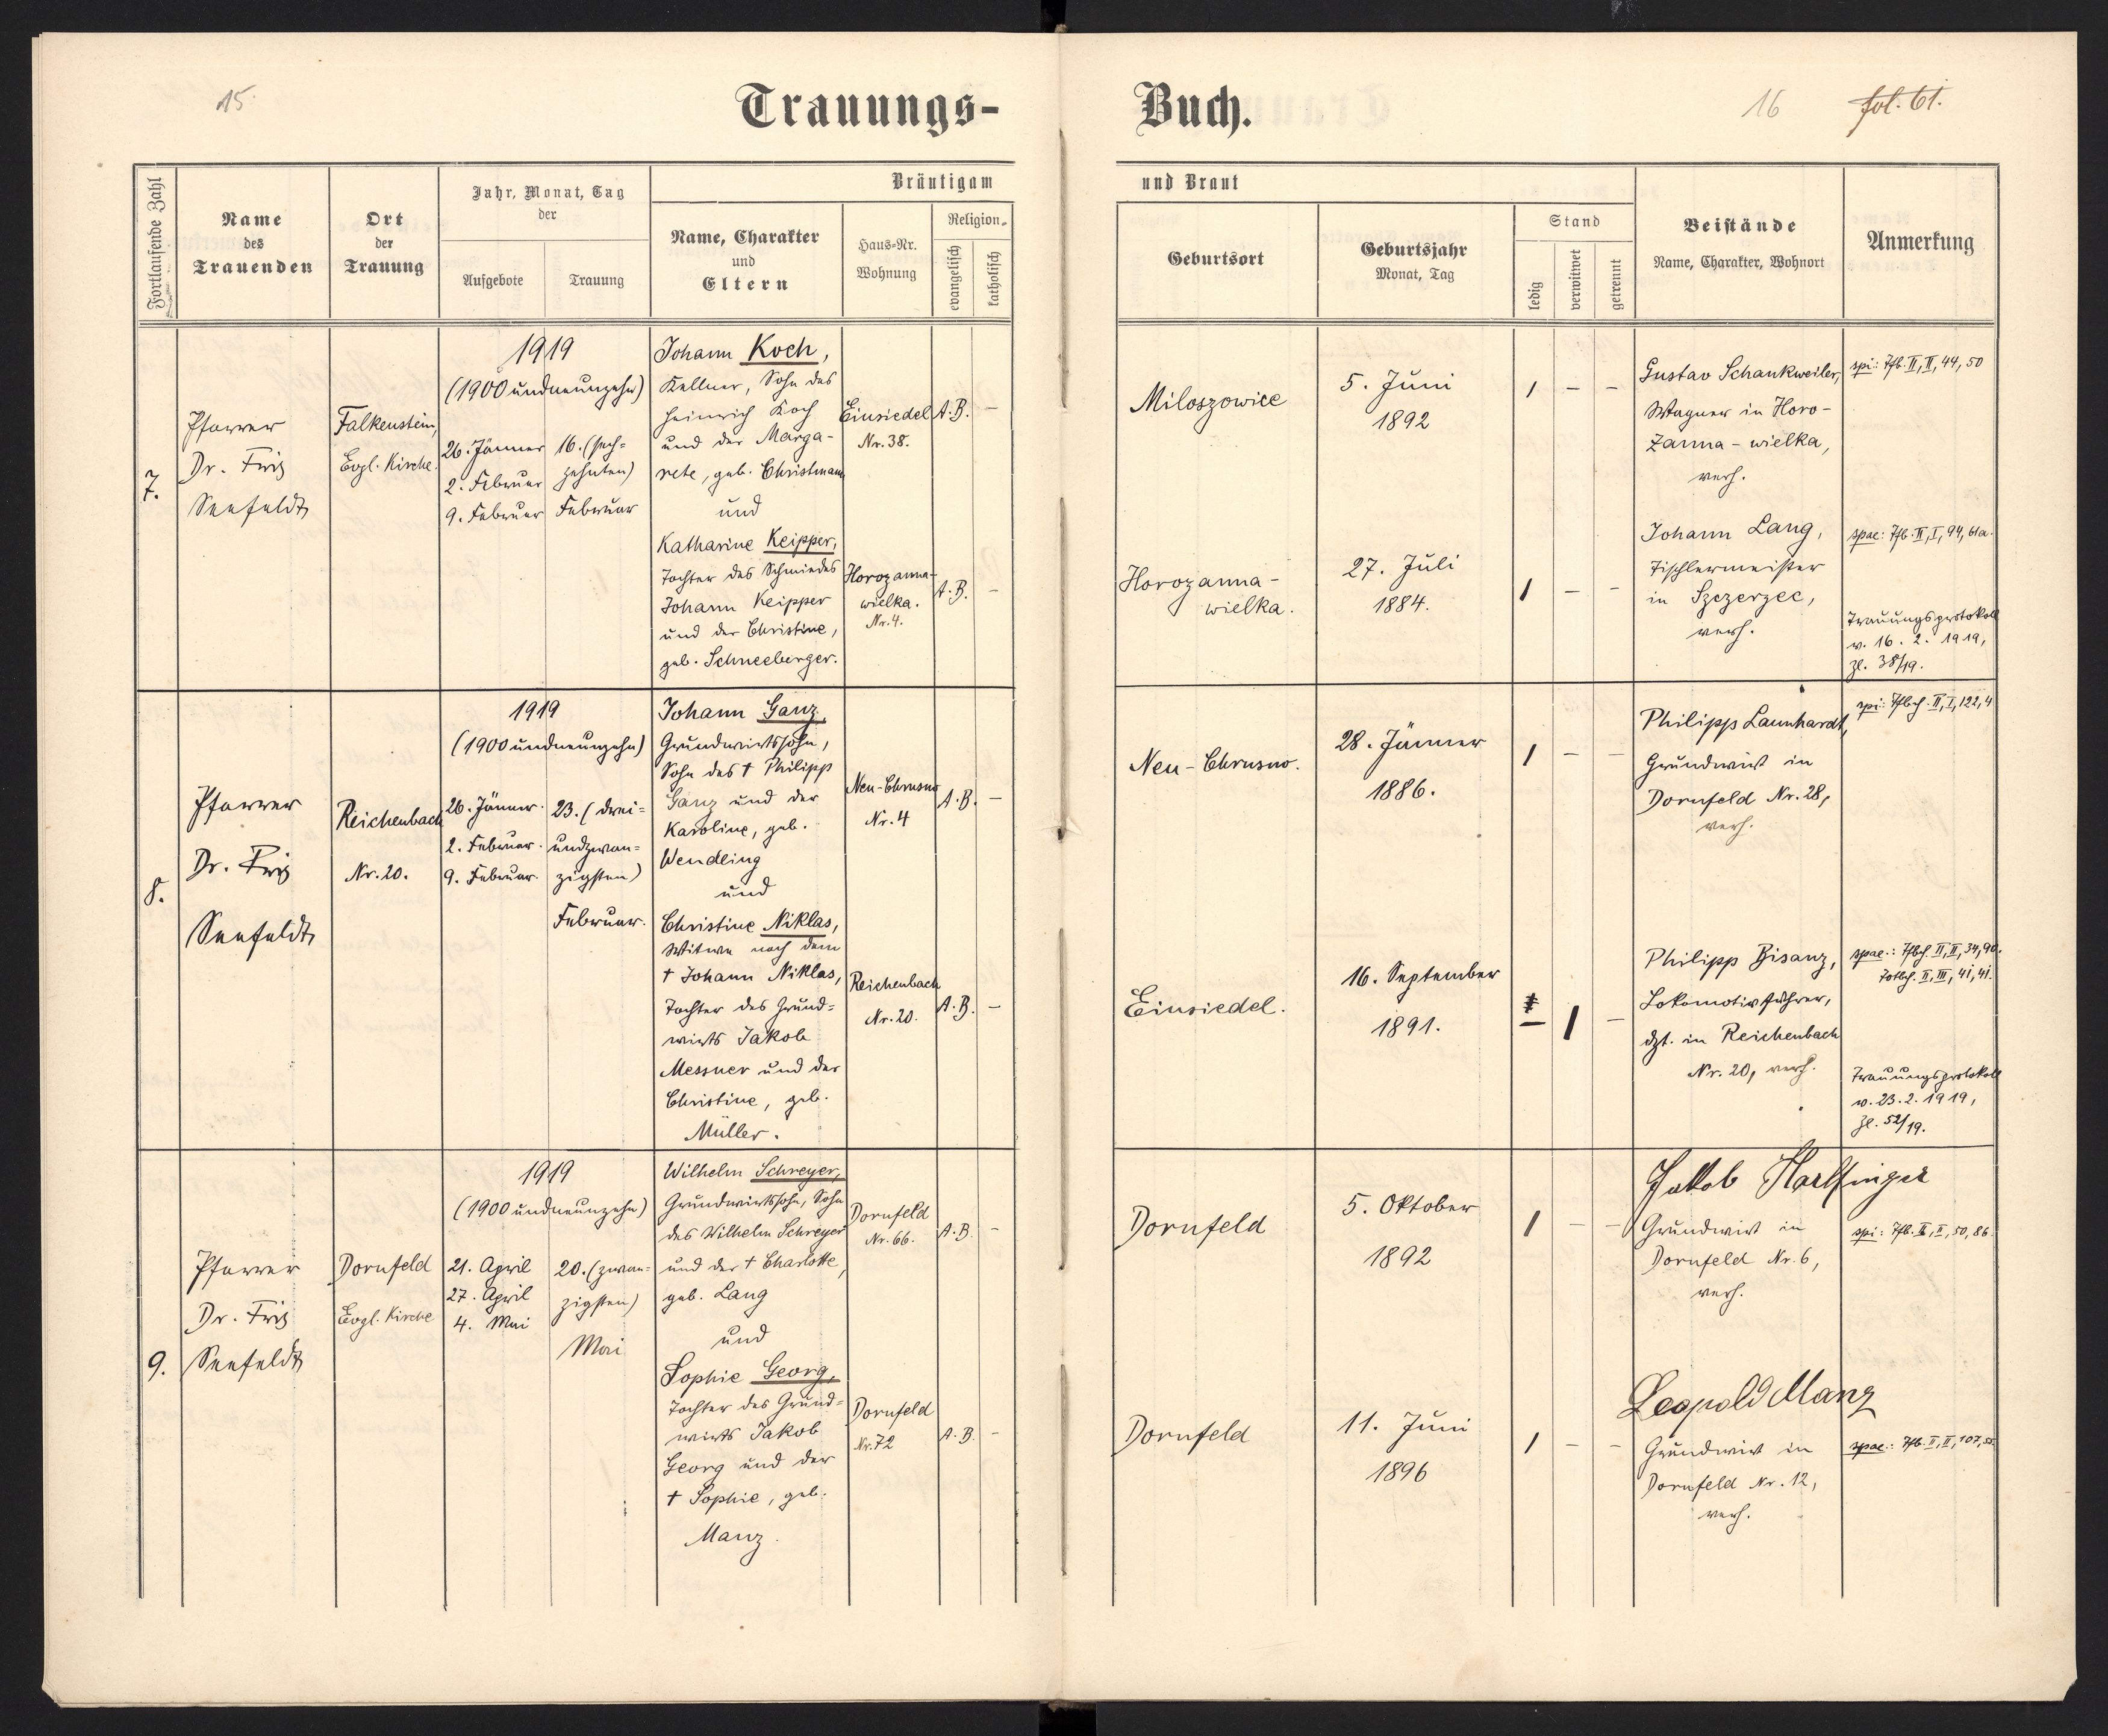 15.
Trauungs-
Buch.
16
fol. 61.
Fortlaufende Zahl
Name
des
Trauenden
Ort
der
Trauung
Jahr, Monat, Tag
der
Aufgebote
Trauung
Bräutigam
Name, Charakter
und
Eltern
Haus-Nr.
Wohnung
Religion
evangelisch
katholisch
und Braut
Geburtsort
Geburtsjahr
Monat, Tag
Stand
ledig
verwitwet
getrennt
Beistände
Name, Charakter, Wohnort
Anmerkung
7.
Pfarrer
Dr. Friz
Seefeldt
Falkenstein,
Evgl. Kirche.
1919
(1900 undneunzehn)
26. Jänner
2. Februar
9. Februar
16. (sech-
zehnten)
Februar
Johann Koch,
Kellner, Sohn des
Heinrich Koch
und der Marga-
rete, geb. Christmann
und
Katharine Keipper,
Tochter des Schmiedes
Johann Keipper
und der Christine,
geb. Schneeberger.
Einsiedel
Nr. 38.
A.B. –
Horozanna-
wielka.
Nr. 4.
A.B. –
Miloszowice
5. Juni
1892
1 – –
Gustav Schankweiler,
Wagner in Horo-
zanna-wielka,
verh.
spi: Tfb. II, II, 44, 50
Horozanna-
wielka.
27. Juli
1884.
1 – –
Johann Lang,
Tischlermeister
in Szczerzec,
verh.
spae: Tfb. II, I, 94, 61a.
Trauungsprotokoll
v. 16. 2. 1919,
Zl. 38/19.
8.
Pfarrer
Dr. Friz
Seefeldt
Reichenbach
Nr. 20.
1919
(1900 undneunzehn)
26. Jänner.
2. Februar.
9. Februar.
23. (drei-
undzwan-
zigsten)
Februar.
Johann Ganz,
Grundwirtssohn,
Sohn des † Philipp
Ganz und der
Karoline, geb.
Wendling
und
Christine Niklas,
Witwe nach dem
† Johann Niklas,
Tochter des Grund-
wirts Jakob
Messner und der
Christine, geb.
Müller.
Neu-Chrusno
Nr. 4
A.B. –
Reichenbach
Nr. 20.
A.B. –
Neu-Chrusno.
28. Jänner
1886.
1 – –
Philipp Launhardt,
Grundwirt in
Dornfeld Nr. 28,
verh.
spi: Tfbch. II, I, 122, 4
Einsiedel.
16. September
1891.
– 1 –
Philipp Bisanz,
Lokomotivführer,
dzt. in Reichenbach
Nr. 20, verh.
spae.: Tfbch. II, II, 34, 90.
Totbch. II, III, 41, 41.
Trauungsprotokoll
v. 23. 2. 1919,
Zl. 52/19.
9.
Pfarrer
Dr. Friz
Seefeldt
Dornfeld
Evgl. Kirche
1919
(1900 undneunzehn)
21. April
27. April
4. Mai
20. (zwan-
zigsten)
Mai
Wilhelm Schreyer,
Grundwirtssohn, Sohn
des Wilhelm Schreyer
und der † Charlotte,
geb. Lang
und
Sophie Georg,
Tochter des Grund-
wirts Jakob
Georg und der
† Sophie, geb.
Manz.
Dornfeld
Nr. 66.
A.B. –
Dornfeld
Nr. 72
A.B. –
Dornfeld
5. Oktober
1892
1 – –
Jakob Harlfinger
Grundwirt in
Dornfeld Nr. 6,
verh.
spi: Tfb. II, II, 50, 86.
Dornfeld
11. Juni
1896
1 – –
Leopold Manz
Grundwirt in
Dornfeld Nr. 12,
verh.
spae.: Tfb. II, II, 107,